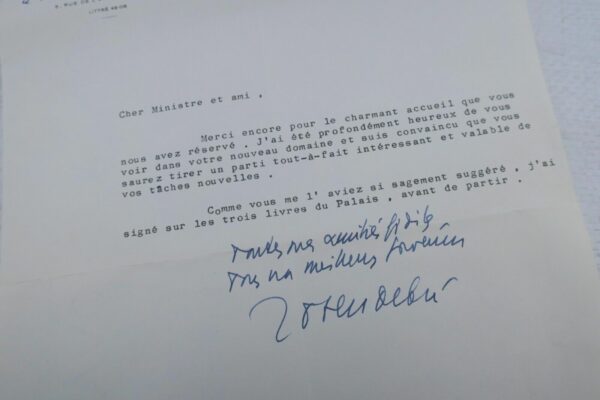 5, RUE DE L
LITTRÉ 48-08
Cher Ministre et ami ,
Merci encore pour le charmant accueil que vous
nous avez réservé . J'ai été profondément heureux de vous
voir dans votre nouveau domaine et suis convaincu que vous
saurez tirer un parti tout-à-fait intéressant et valable de
vos tâches nouvelles .
Comme vous me l' aviez si sagement suggéré , j'ai
signé sur les trois livres du Palais , avant de partir .
Toutes mes amitiés fidèles
meilleurs souvenirs